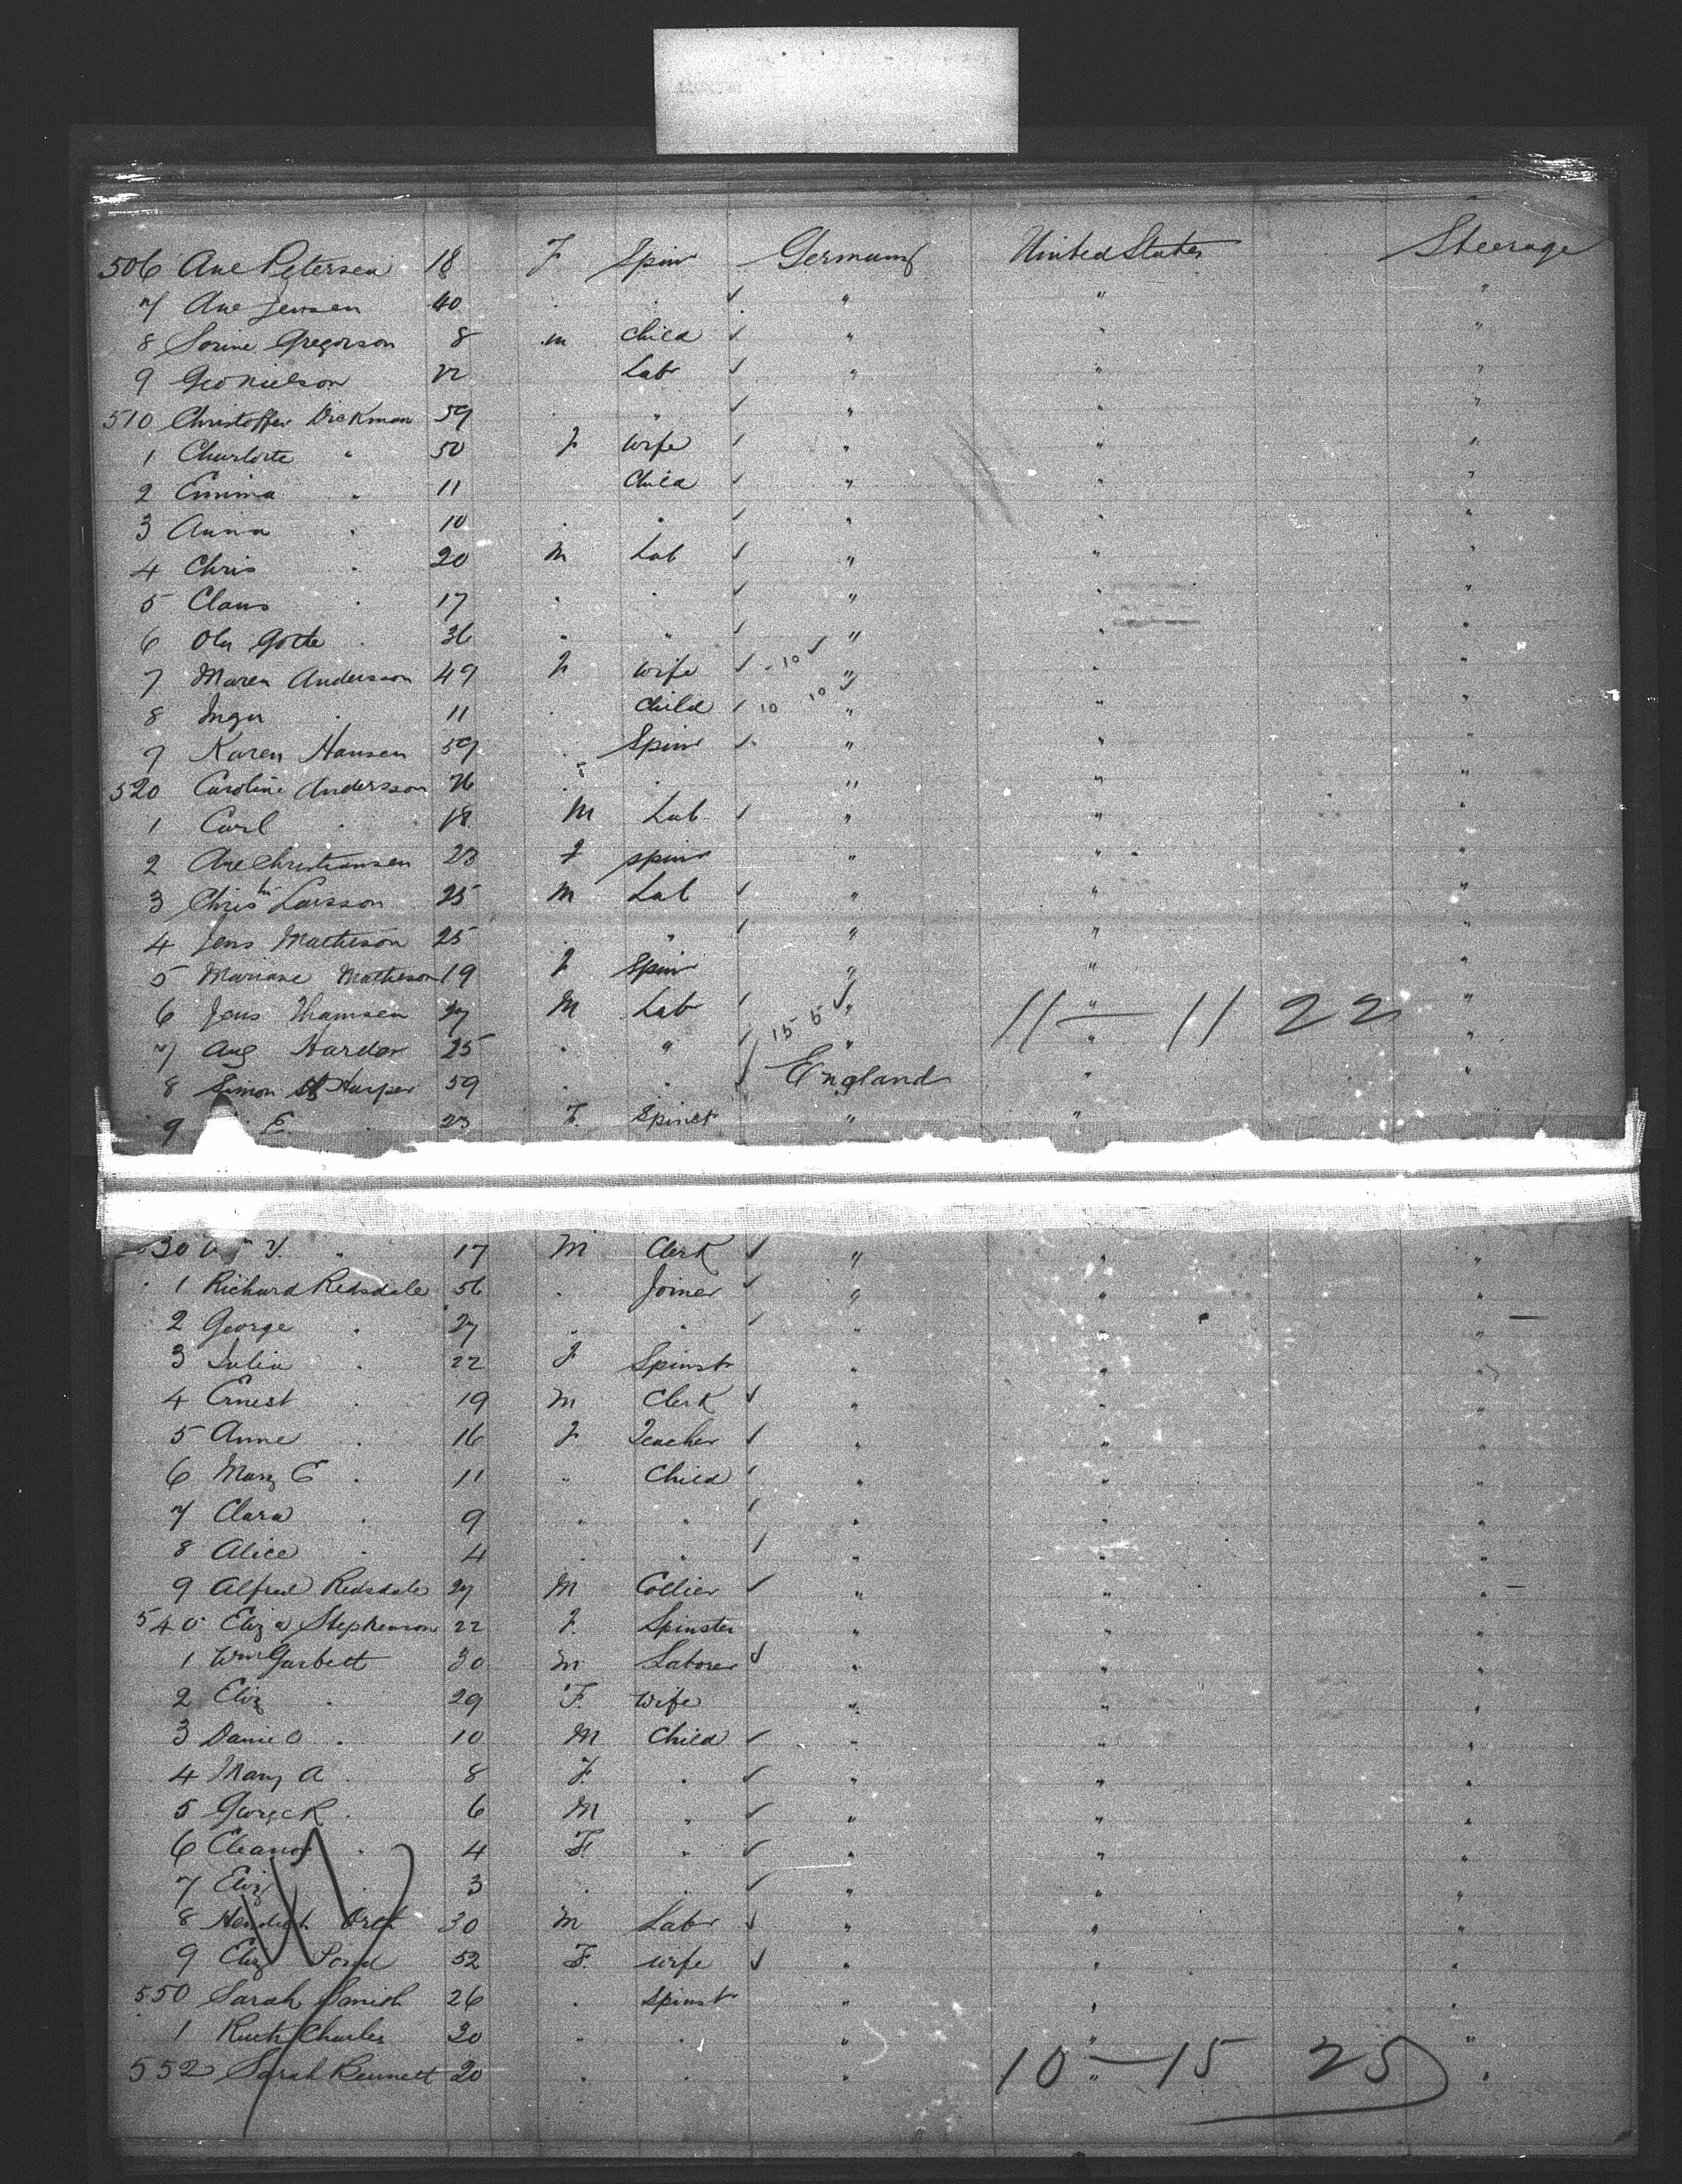 506 Ane Petersen 18 F Spinr Germany United States Steerage
7 Ane Jensen 40 . . ✓ " " "
8 Sorine Gregorson 8 m Child ✓ " " "
9 Geo Nielson 22 Labr ✓ " " "
510 Christoffer Dickman 59 . " ✓ " " "
1 Charlotte " 50 F Wife ✓ " " "
2 Emma " 11 Child ✓ " " "
3 Anna " 10 . . ✓ " " "
4 Chris . 20 M Lab ✓ " " "
5 Claus . 17 . . ✓ " " "
6 Ola . 36 " " ✓ " " "
7 Maren Anderson 49 F Wife ✓ - 10 ✓ " " "
8 Inga . 11 . Child ✓ 10 10 ✓ " " "
9 Karen Hansen 59 . Spinr ✓ " " "
520 Caroline Andersson . . " " "
1 Carl . 18 M Lab ✓ " " "
2 Ane Christiansen 23 F Spinr " " "
3 Chris Larsson 25 M Lab ✓ " " "
4 Jens Matheson 25 . " ✓ " " "
5 Mariane Matheson 19 F Spinr " " "
6 Jens Thamsen 27 M Labr ✓ " 11 — " 11 22 "
7 Aug Harder 25 . " ✓ 15 5 ✓ " " "
8 Simon Harper 59 . . ✓ England " "
9 E. . 23 F. Spinst " " "
30 Y. " 17 M Clerk ✓ " " "
1 Richard Redsdale 56 . Joiner ✓ " " "
2 George . 27 " . ✓ " " "
3 Julia . 22 F Spinstr " " "
4 Ernest . 19 M Clerk ✓ " " "
5 Anne . 16 F Teacher ✓ " " "
6 Mary E . 11 " Child ✓ " " "
7 Clara . 9 . " ✓ " " "
8 Alice . 4 . " ✓ " " "
9 Alfred Redsdale 27 M Collier ✓ " " "
540 Eliza Stephenson 22 F. Spinster " " "
1 Wm Garbett 30 M Laborer ✓ " " "
2 Eliz . 29 F. Wife " " "
3 . 10 M Child ✓ " " "
4 Mary A . 8 F. . ✓ " " "
5 George R . 6 M " ✓ " " "
6 Eleanor . 4 F. " ✓ " " "
7 Eliz . 3 . . ✓ " " "
8 30 M Labr ✓ " " "
9 Eliz Pond 52 F. Wife ✓ " " "
550 Sarah 26 . Spinst " " "
1 Ruth Charles 30 " . " " "
552 Sarah Bennett 20 . . " 10 — " 15 25 "